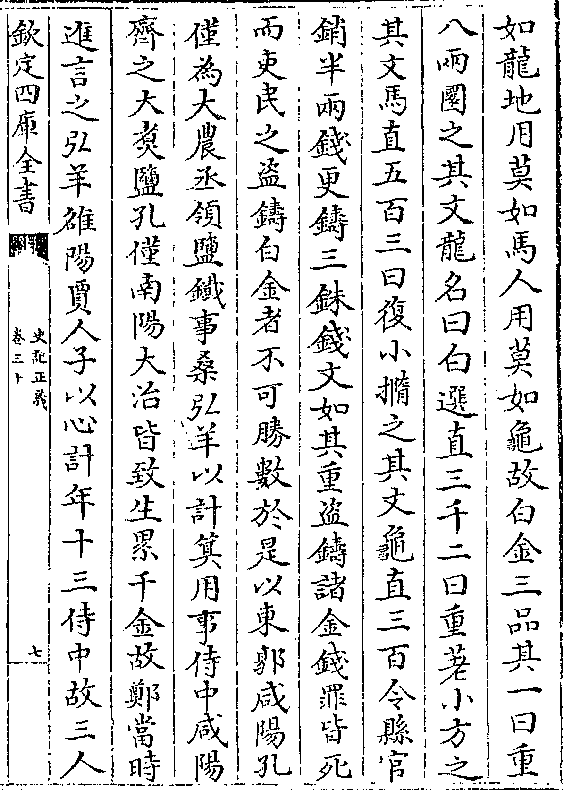 如龍地用莫如馬人用莫如龜故白金三品其一曰重
八兩圜之其文龍名曰白選直三千二曰重差小方之
其文馬直五百三曰復小撱之其文龜直三百令縣官
銷半兩錢更鑄三銖錢文如其重盗鑄諸金錢罪皆死
而吏民之盗鑄白金者不可勝數於是以東郭咸陽孔
僅為大農丞領鹽鐵事桑弘羊以計算用事侍中咸陽
齊之大煑鹽孔僅南陽大冶皆致生累千金故鄭當時
進言之弘羊雒陽賈人子以心計年十三侍中故三人
欽定四庫全書
史記正義
卷三十
七